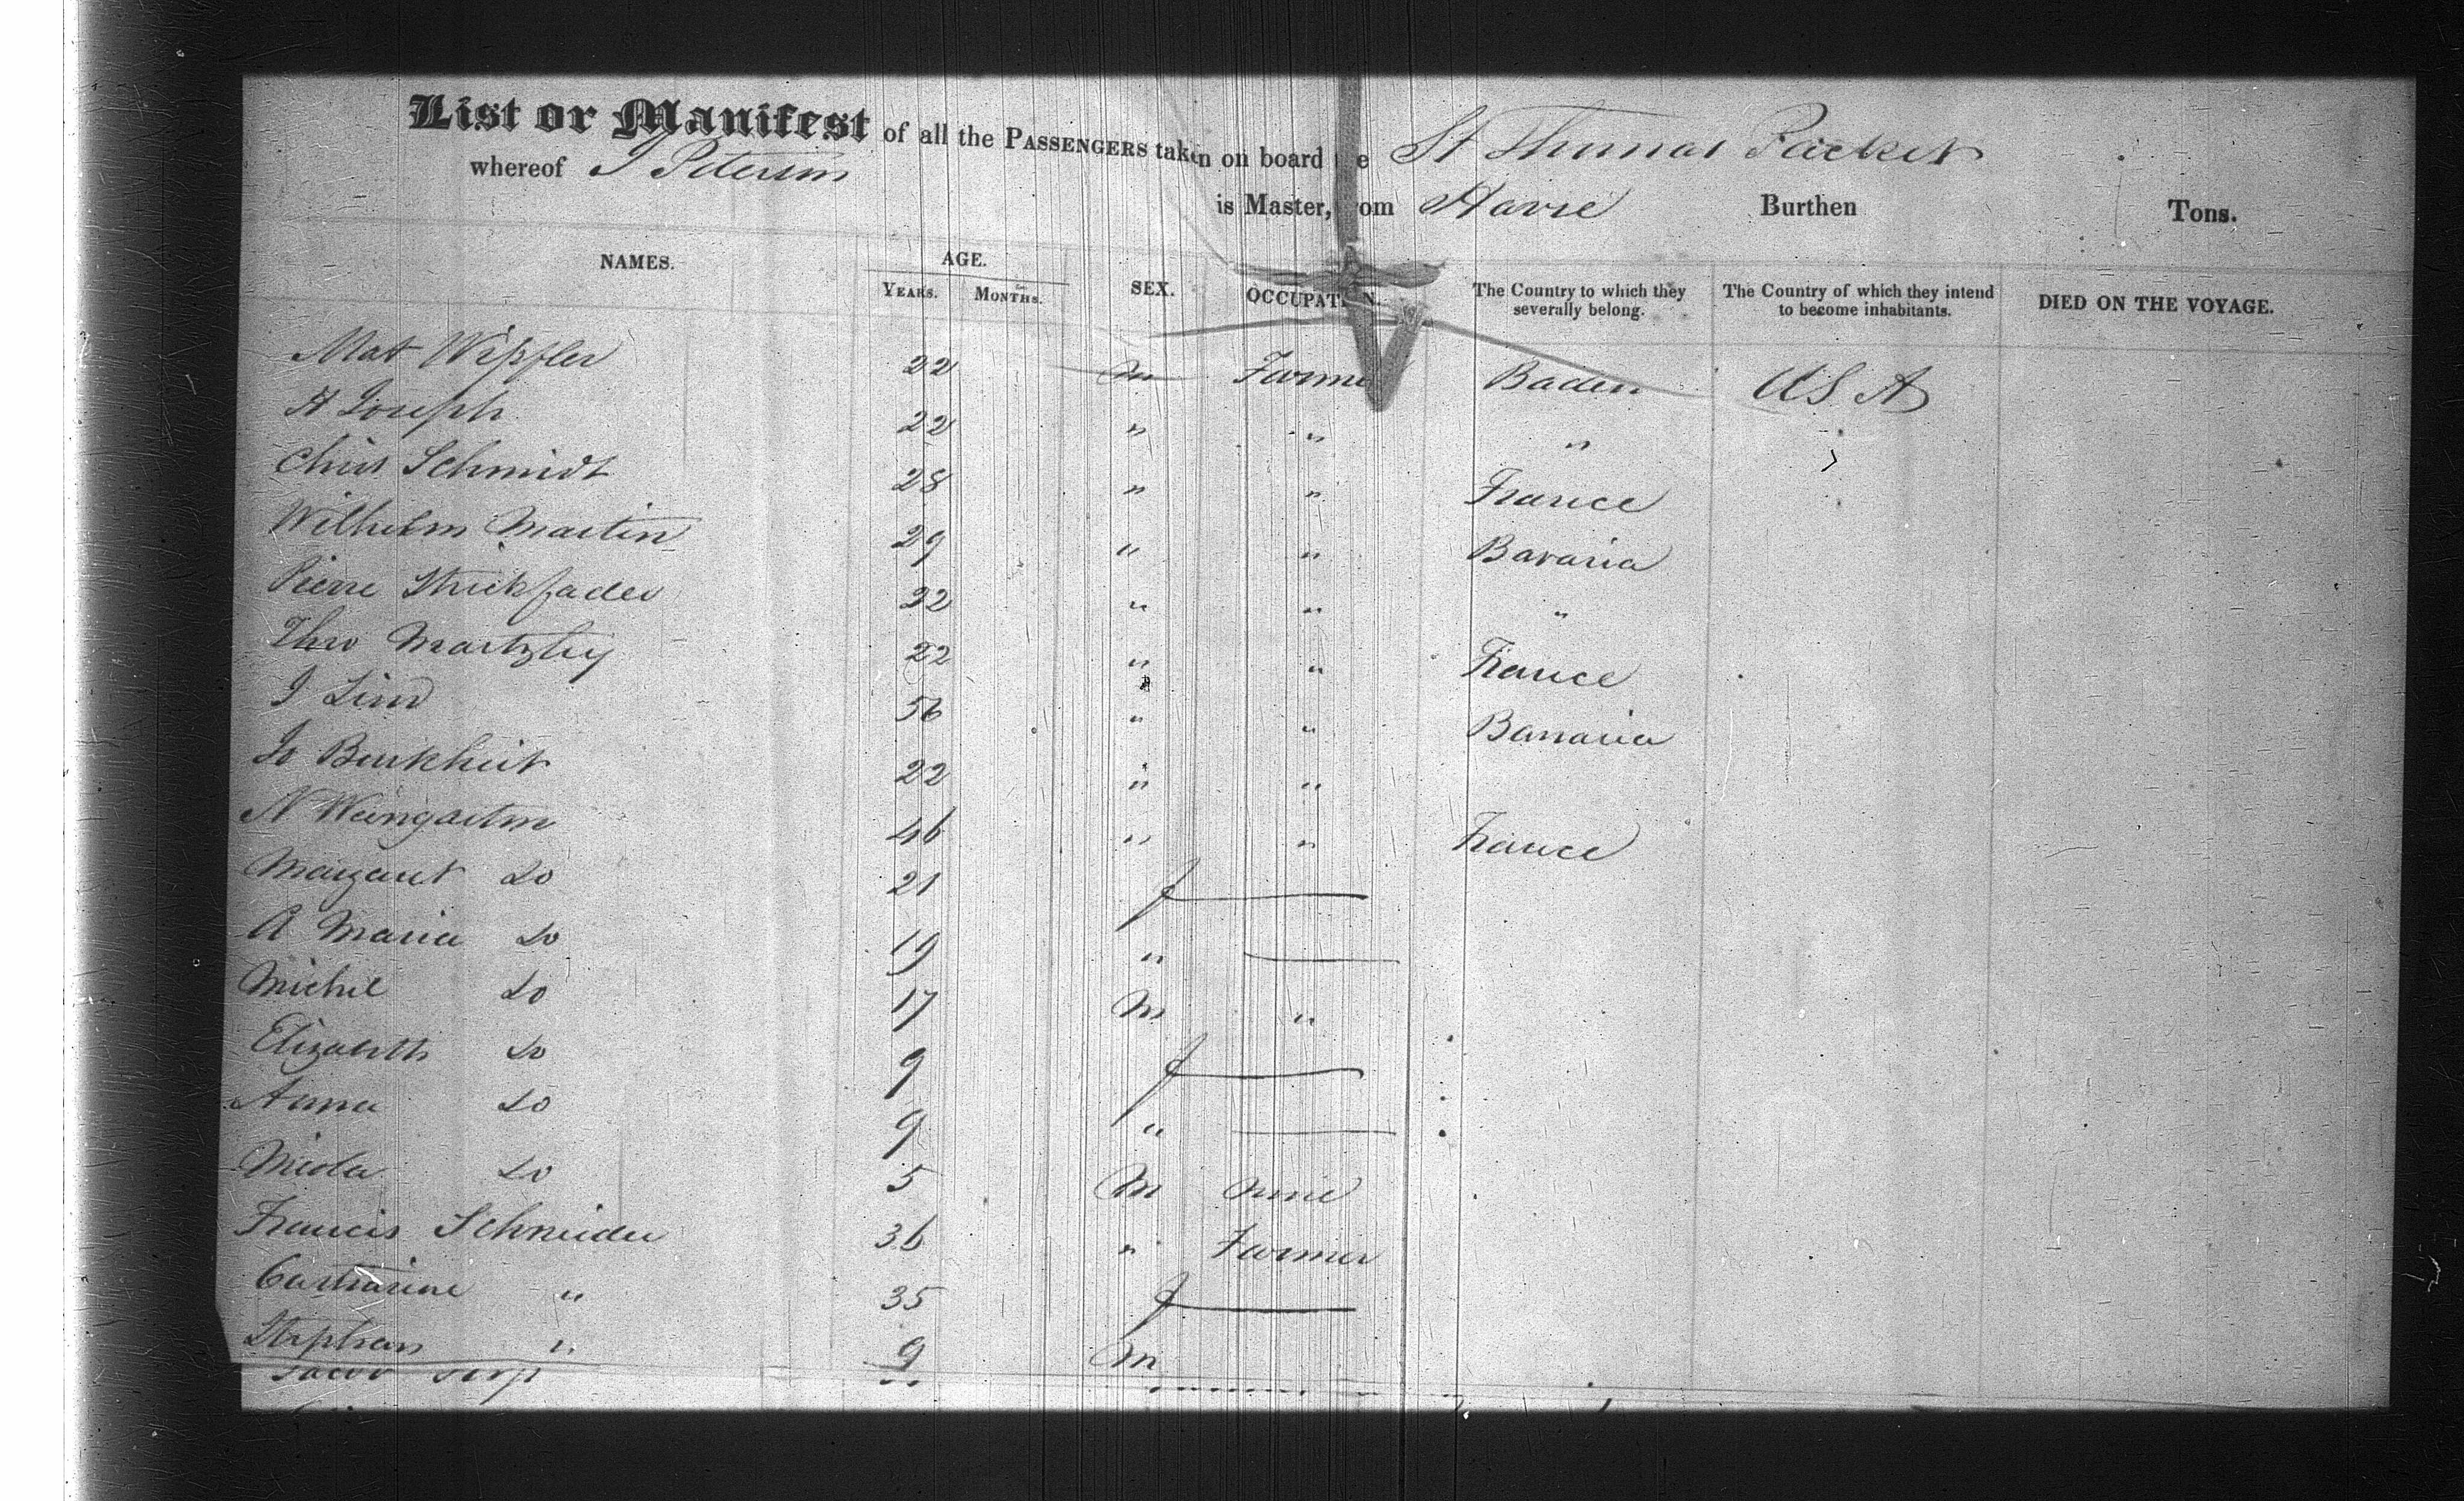 List or Manifest of all the PASSENGERS taken on board the St Thomas Packet
whereof J Peterson is Master, from Havre Burthen Tons.
NAMES. AGE. YEARS. MONTHS. SEX. OCCUPATION. The Country to which they severally belong. The Country of which they intend to become inhabitants. DIED ON THE VOYAGE.
Mat Wipfler 22 m Farmer Baden US A
A Joseph 22 " " "
Chris Schmidt 28 " " France
Wilhelm Martin 29 " " Bavaria
Pierre Strickfaden 22 " " "
Theo 22 " " France
J Lind 56 " " Bavaria
Jo Burkheit 22 " "
N Weingartner 46 " " France
Margaret Do 21 f
A Maria Do 19 "
Michel Do 17 M "
Elizabeth Do 9 f
Anna Do 9 "
Do 5 M None
Francis Schneider 36 " Farmer
Catharine " 35 f
Stephan " 9 M